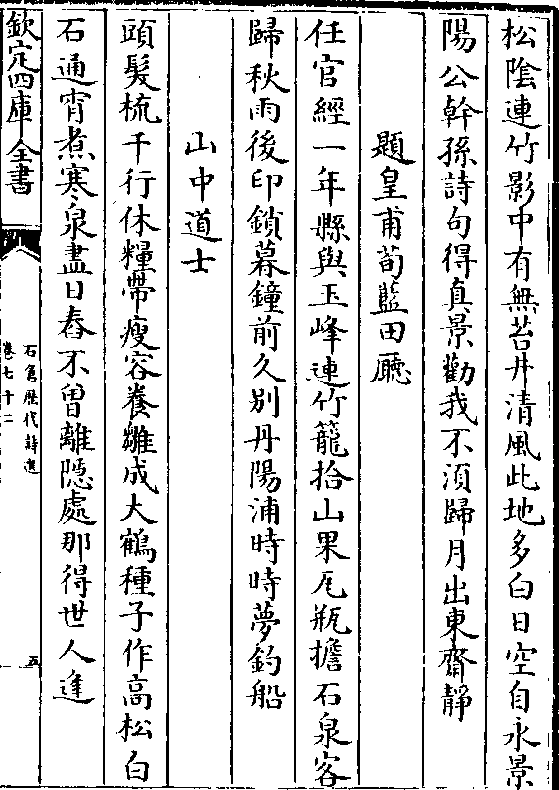 松陰連竹影中有無苔井清風此地多白日空自永景
陽公幹孫詩句得真景勸我不須歸月出東齋靜
題皇甫荀藍田廳
任官經一年縣與玉峰連竹籠拾山果瓦瓶擔石泉客
歸秋雨後印鎖暮鐘前久別丹陽浦時時夢釣船
山中道士
頭髮梳千行休糧帶瘦容養雛成大鶴種子作高松白
石通宵煮寒泉盡日舂不曾離隱處那得世人逢
欽定四庫全書
石倉歷代詩選
卷七十二
五